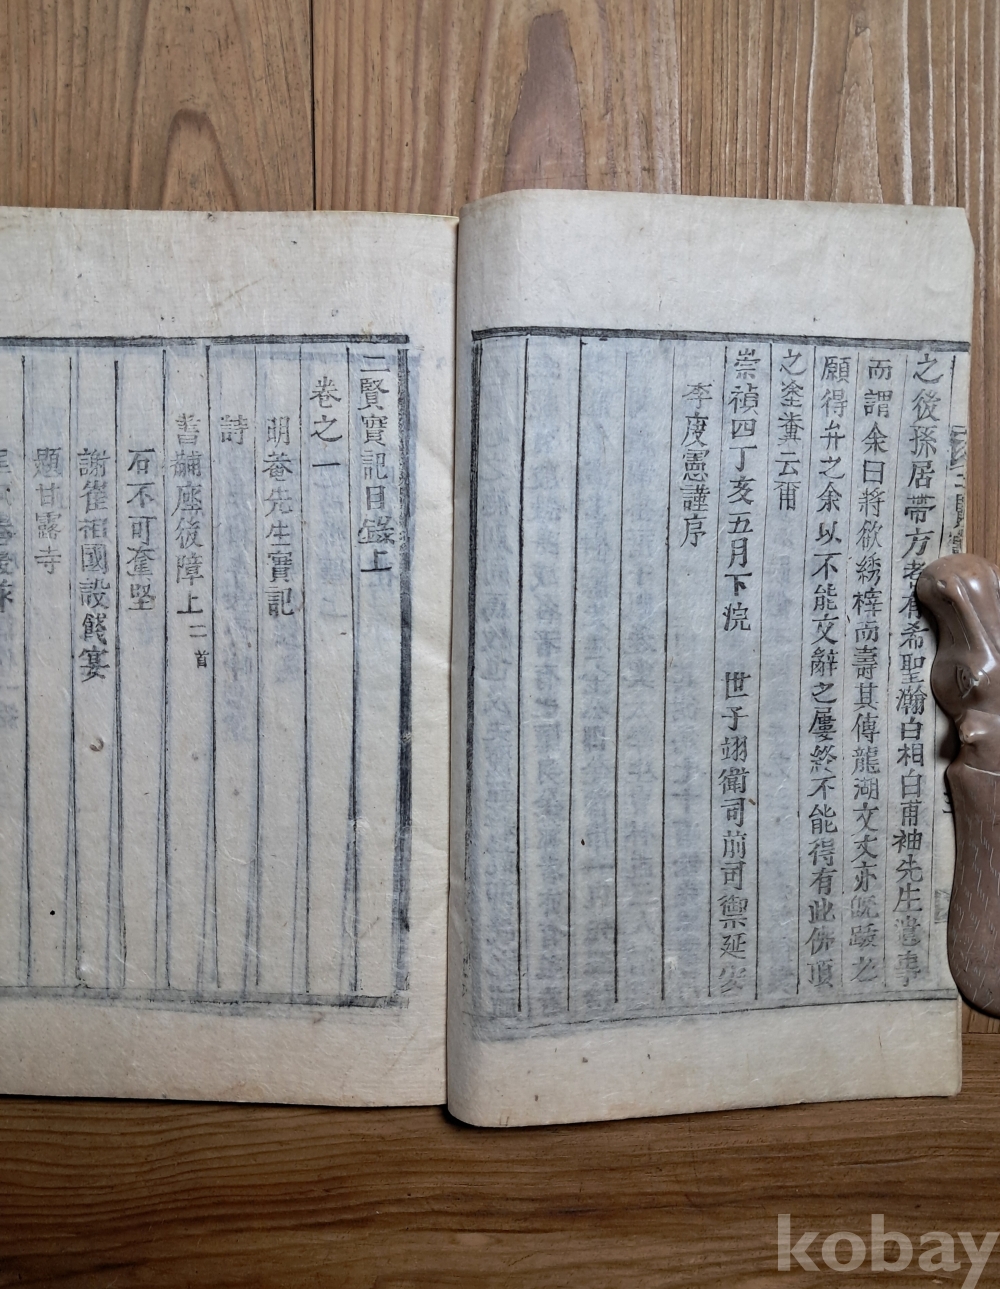 之後孫居帶方者有希聖瀚白相白甫袖先生遺事
而謂余曰將欲綉梓而壽其傳龍湖文丈亦旣跋之
願得弁之余以不能文辭之屢終不能得有此佛頂
之塗糞云爾
崇禎四丁亥五月下浣 世子翊衛司前司禦延安
李度憲謹序
二賢實記目錄上
卷之一
明菴先生實記
詩
書黼座後障上 二首
石不可奪堅
謝崔相國設餞宴
題甘露寺
kobay